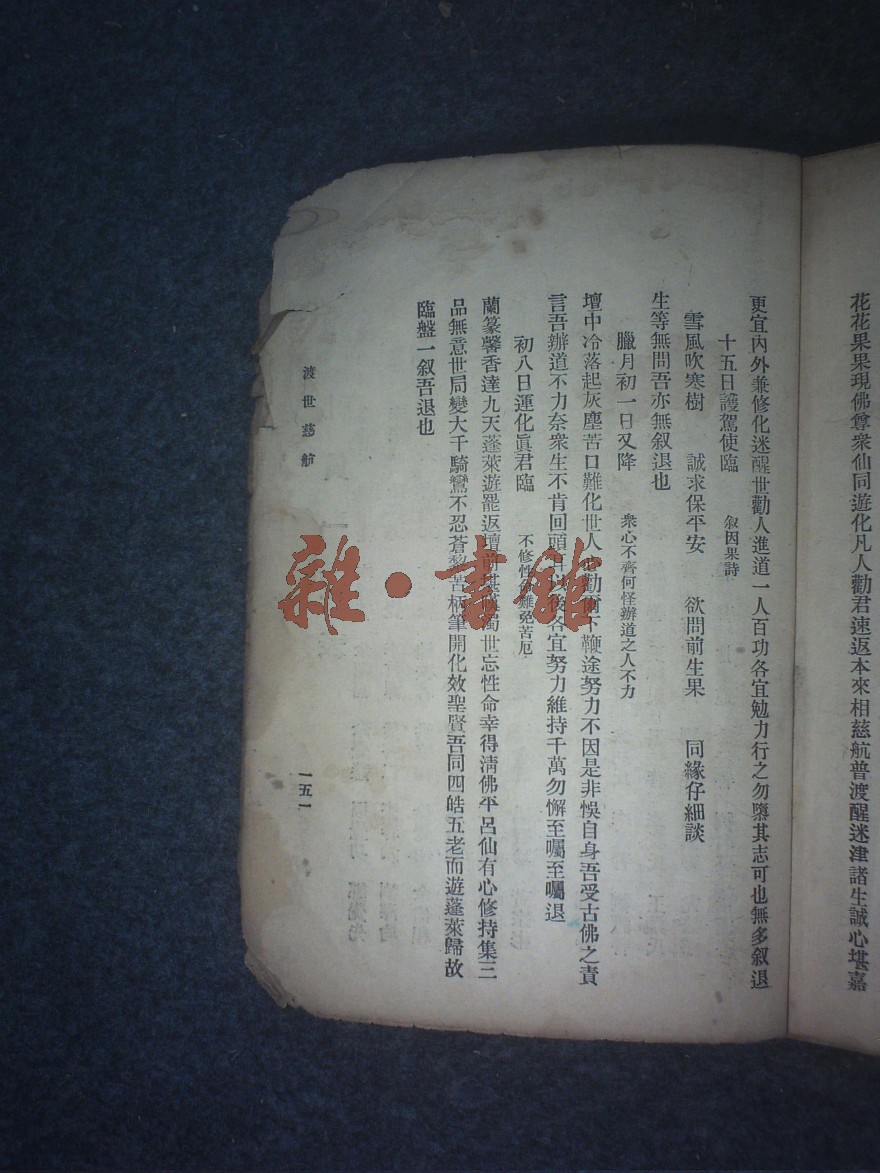 花花果果現佛尊衆仙同遊化凡人勸君速返本來相慈航普渡醒迷津諸生誠心堪嘉
更宜內外兼修化迷醒世勸人進道一人百功各宜勉力行之勿隳其志可也無多叙退
十五日護駕使臨　叙因果詩
雪風吹寒樹　誠求保平安　欲問前生果　同緣仔細談
生等無問吾亦無叙退也
臘月初一日又降　衆心不齊何怪辦道之人不力
壇中冷落起灰塵苦口難化世人心勸爾下鞭途努力不因是非悞自身吾受古佛之責
言吾辦道不力奈衆生不肯回頭耳以後各宜努力維持千萬勿懈至囑至囑退
初八日運化眞君臨　不修性命難免苦厄
蘭篆馨香達九天蓬萊遊罷返壇前堪嘆濁世忘性命幸得淸佛平呂仙有心修持集三
品無意世局變大千騎鸞不忍蒼黎苦柄筆開化效聖賢吾同四皓五老而遊蓬萊歸故
臨盤一叙吾退也
渡世慈航
一五一
雜·書館